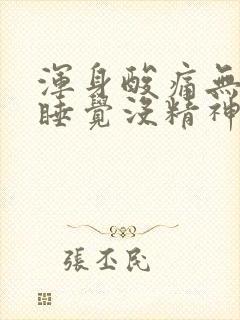 渾身酸痛無
睡覺沒精神
張丕民